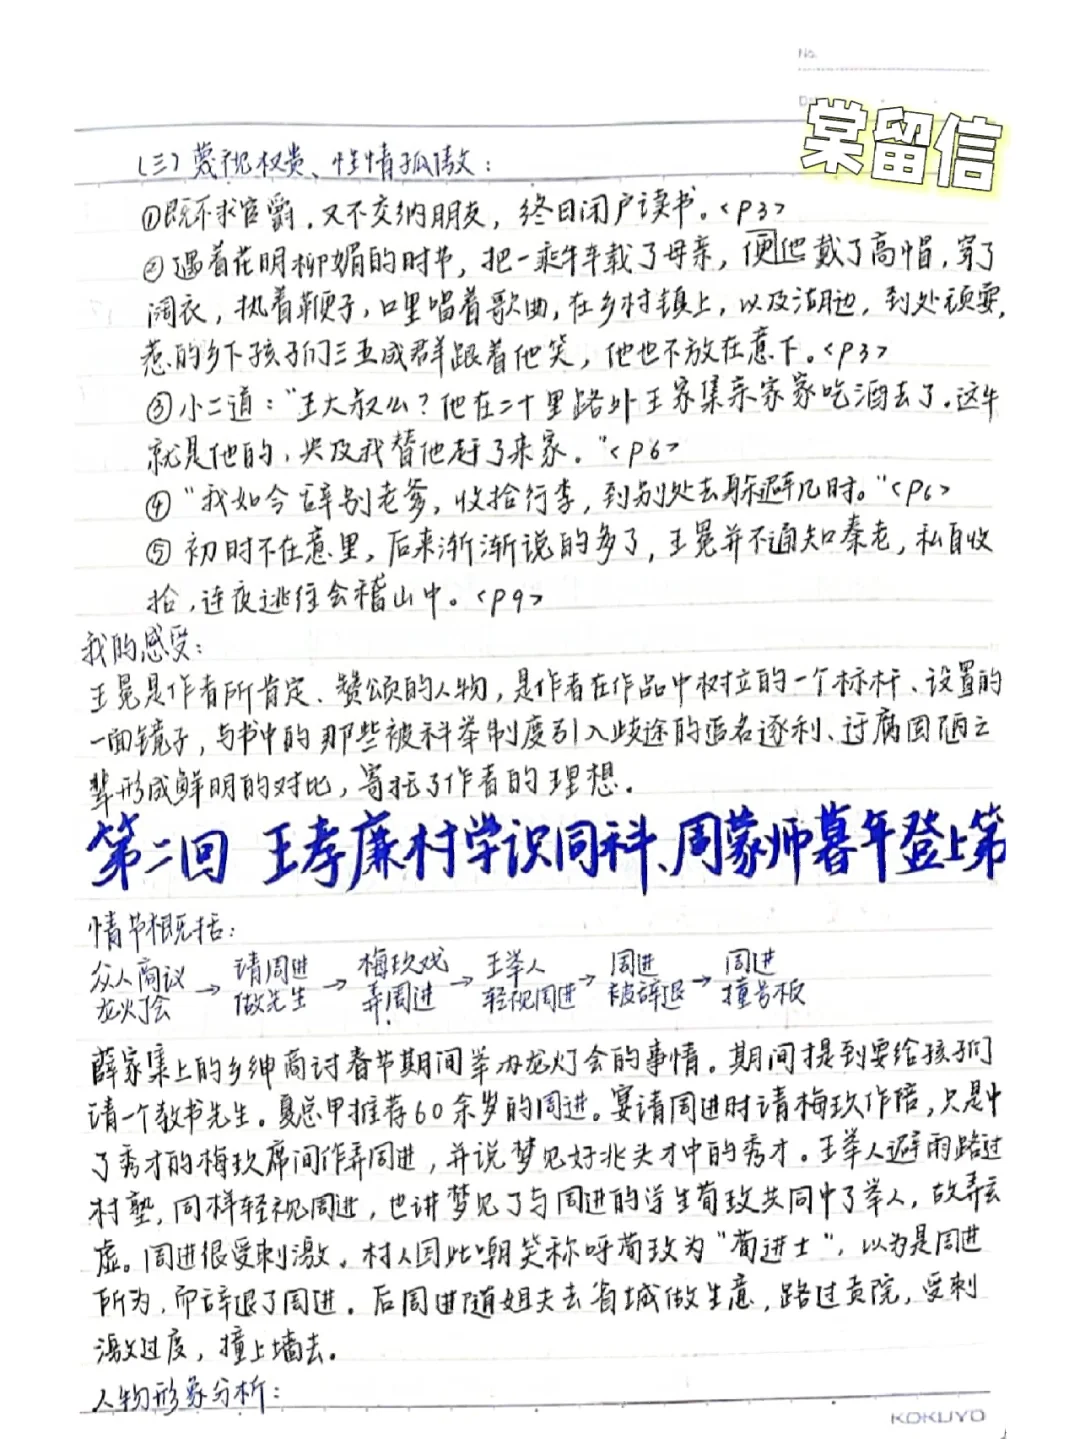 No.
棠留信
(三)蔑视权贵、性情孤傲:
①既不求官爵,又不交纳朋友,终日闭户读书。<P3>
②遇着花明柳媚的时节,把一乘牛车载了母亲,便他戴了高帽,穿了
阔衣,执着鞭子,口里唱着歌曲,在乡村镇上,以及湖边,到处顽耍,
惹的乡下孩子们三五成群跟着他笑,他也不放在意下。<P3>
③小二道:"王大叔么?他在二十里路外王家集亲家家吃酒去了.这牛
就是他的,央及我替他赶了来家。"<P6>
④"我如今辞别老爹,收拾行李,到别处去躲避几时。"<P6>
⑤初时不在意里,后来渐渐说的多了,王冕并不通知秦老,私自收
拾,连夜逃往会稽山中。<P9>
我的感受:
王冕是作者所肯定、赞颂的人物,是作者在作品中树立的一个标杆、设置的
一面镜子,与书中的那些被科举制度引入歧途的追名逐利、迂腐固陋之
辈形成鲜明的对比,寄托了作者的理想.
第二回 王孝廉村学识同科、周蒙师暮年登上第
情节概括:
众人商议龙灯会→请周进做先生→梅玖戏弄周进→王举人轻视周进→周进被辞退→周进撞号板
薛家集上的乡绅商讨春节期间举办龙灯会的事情。期间提到要给孩子们
请一个教书先生。夏总甲推荐60余岁的周进。宴请周进时请梅玖作陪,只是中
了秀才的梅玖席间作弄周进,并说梦见好兆头才中的秀才。王举人避雨路过
村塾,同样轻视周进,也讲梦见了与周进的学生荀玫共同中了举人,故弄玄
虚。周进很受刺激。村人因此嘲笑称呼荀玫为"荀进士",以为是周进
所为,而辞退了周进.后周进随姐夫去省城做生意,路过贡院,受刺
激过度,撞上墙去.
人物形象分析:
KOKUYO